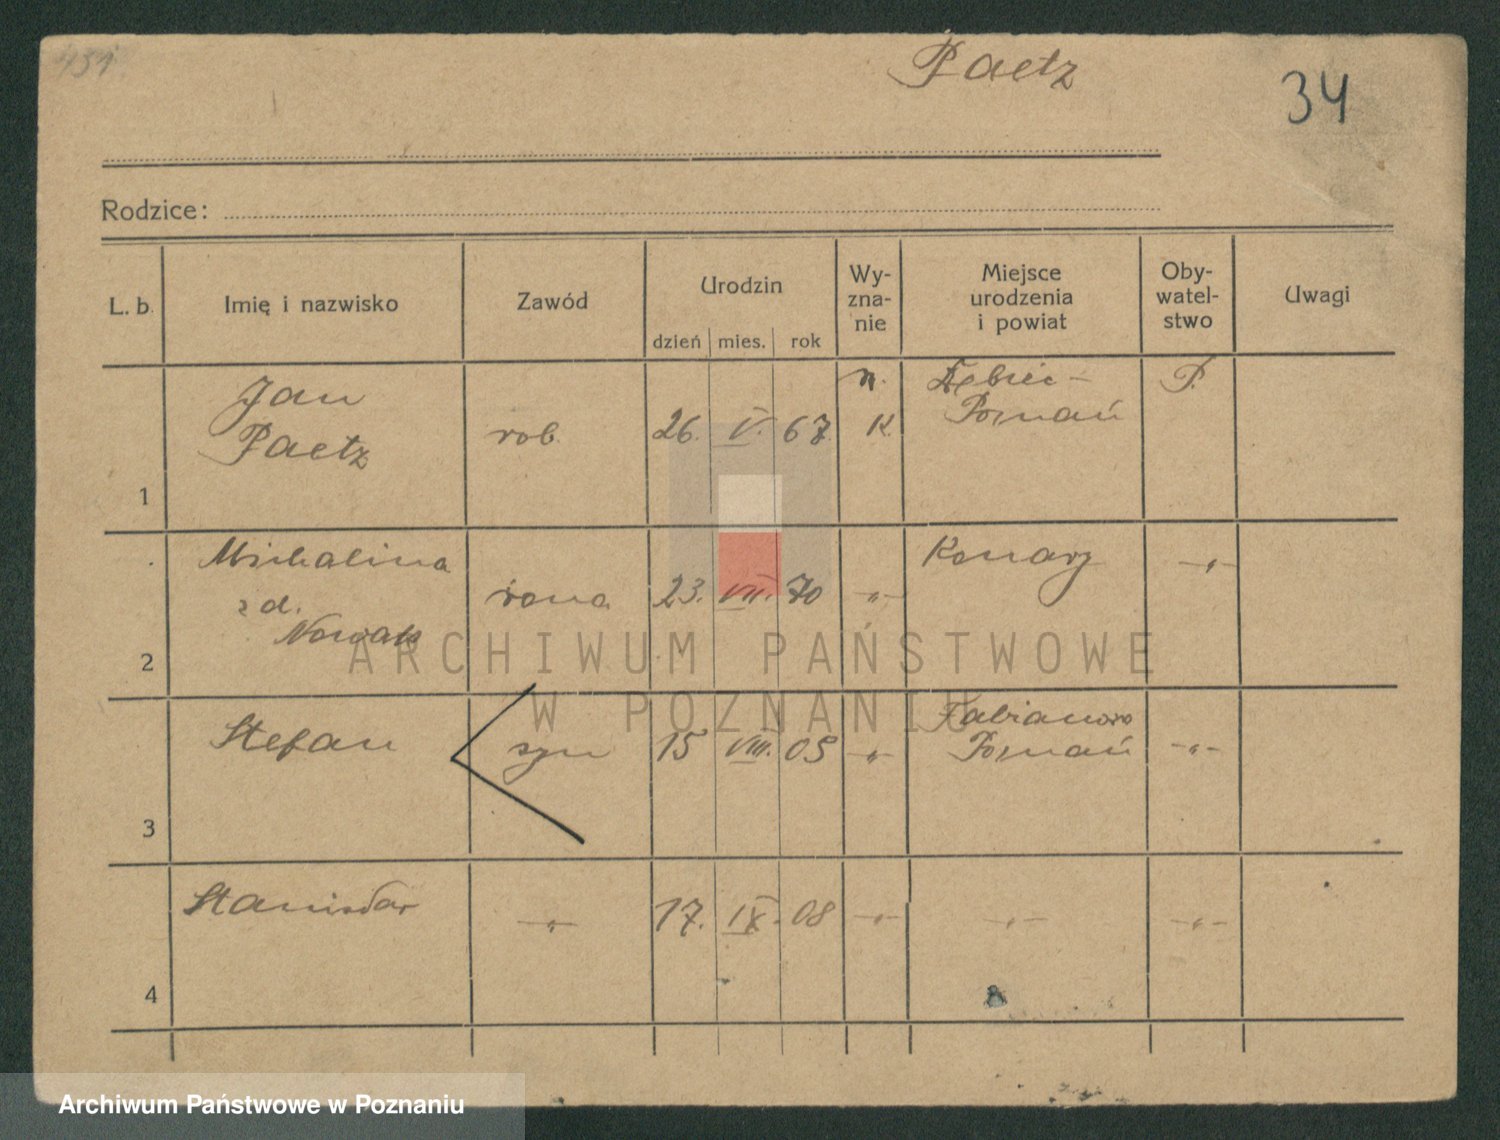 Paetz
34
Rodzice:
L. b. Imię i nazwisko Zawód Urodzin Wy-zna-nie Miejsce urodzenia i powiat Oby-watel-stwo Uwagi
dzień mies. rok
1 Jan Paetz rob. 26. V. 67 r. K. Dębiec - Poznań P.
2 Michalina z d. Nowak żona 23. VII. 70 -„- Konarz -„-
3 Stefan syn 15 VIII. 05 -„- Fabianowo Poznań -„-
4 Stanisław -„- 17. IX. 08 -„- -„- -„-
ARCHIWUM PAŃSTWOWE
W POZNANIU
Archiwum Państwowe w Poznaniu